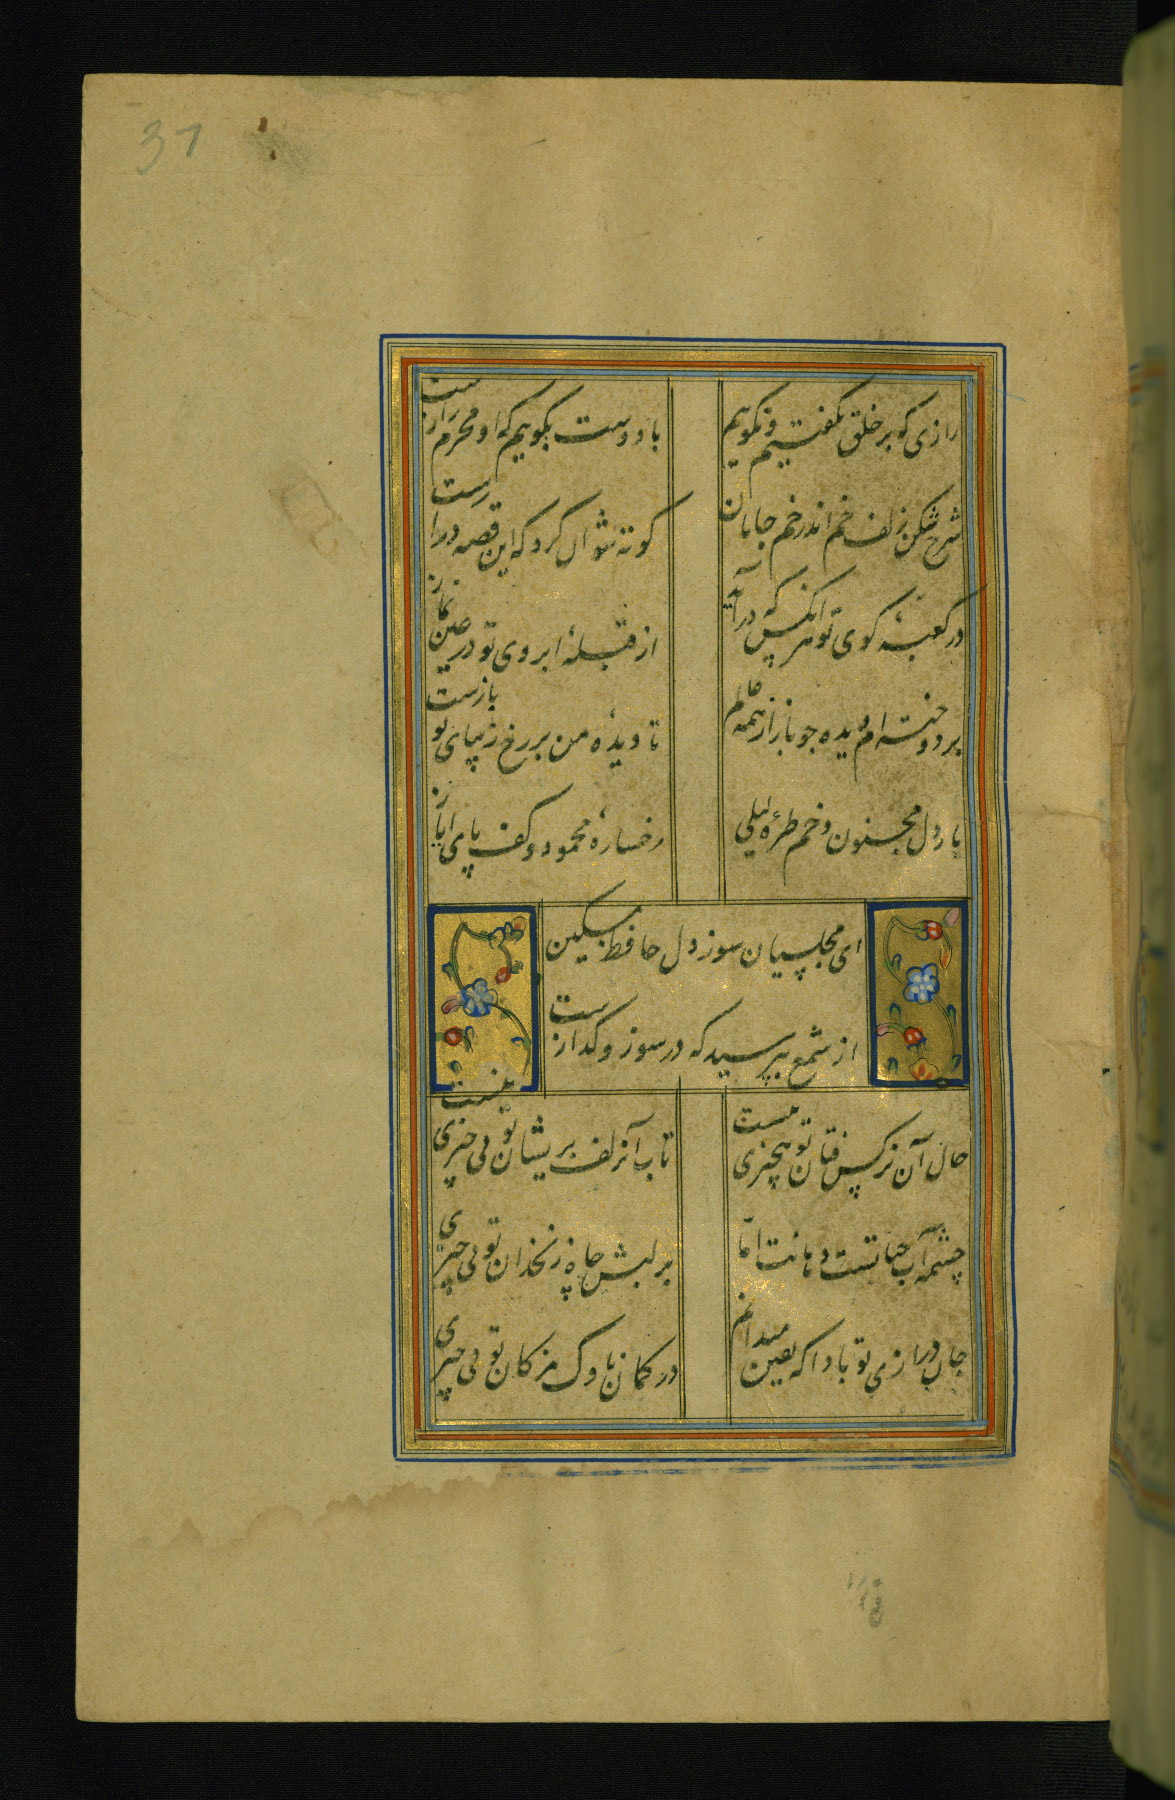 37
رازی که بر خلق نگفتیم و نگوییم
با دوست بگوییم که او محرم رازست
شرح شکن زلف خم اندر خم جانان
کوته نتوان کرد که این قصه درازست
در کعبهٔ کوی تو هر آنکس که درآید
از قبلهٔ ابروی تو در عین نماز
بردوخته‌ام دیده چو باز از همه عالم
تا دیدهٔ من بر رخ زیبای تو بازست
بار دل مجنون و خم طرهٔ لیلی
رخسارهٔ محمود و کف پای ایاز
ای مجلسیان سوز دل حافظ مسکین
از شمع بپرسید که در سوز و گدازست
حال آن نرگس فتان تو بیچیزی نیست
تاب آنزلف پریشان تو بی چیزی نیست
چشمهٔ آب حیاتست دهانت اما
بر لبش چاه زنخدان تو بی چیزی
جان درازی تو بادا که یقین میدانم
در کمان ناوک مژگان تو بی چیزی